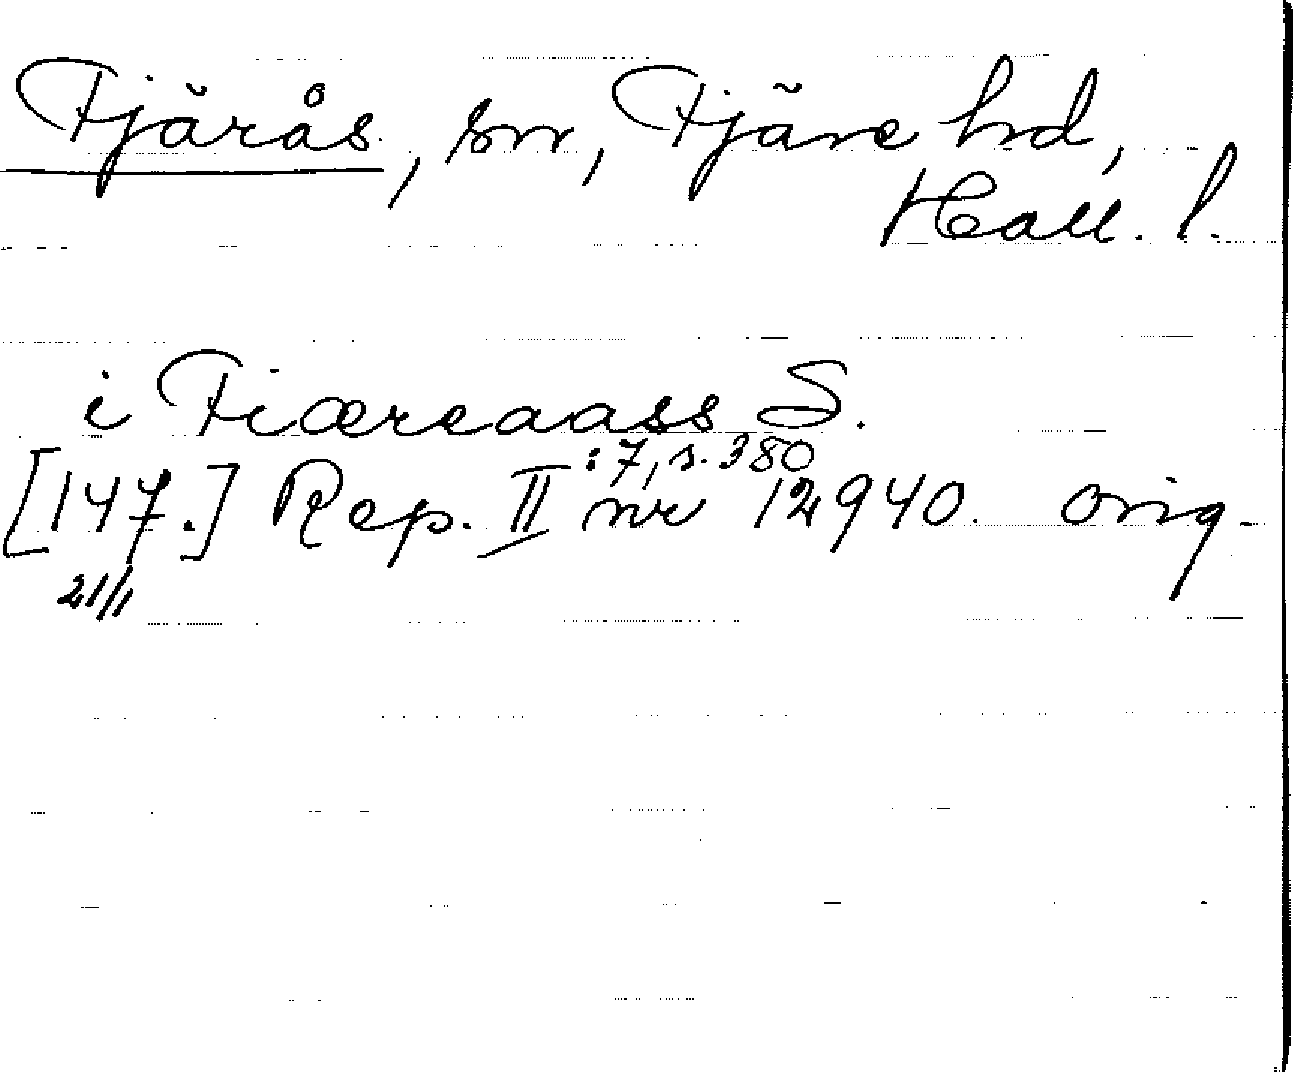 Fjärås, sn, Fjäre hd,
Hall. l.
i Fiæreaass S.
:7, s. 380
[147.] Rep. II nr 12940. orig.
21/1